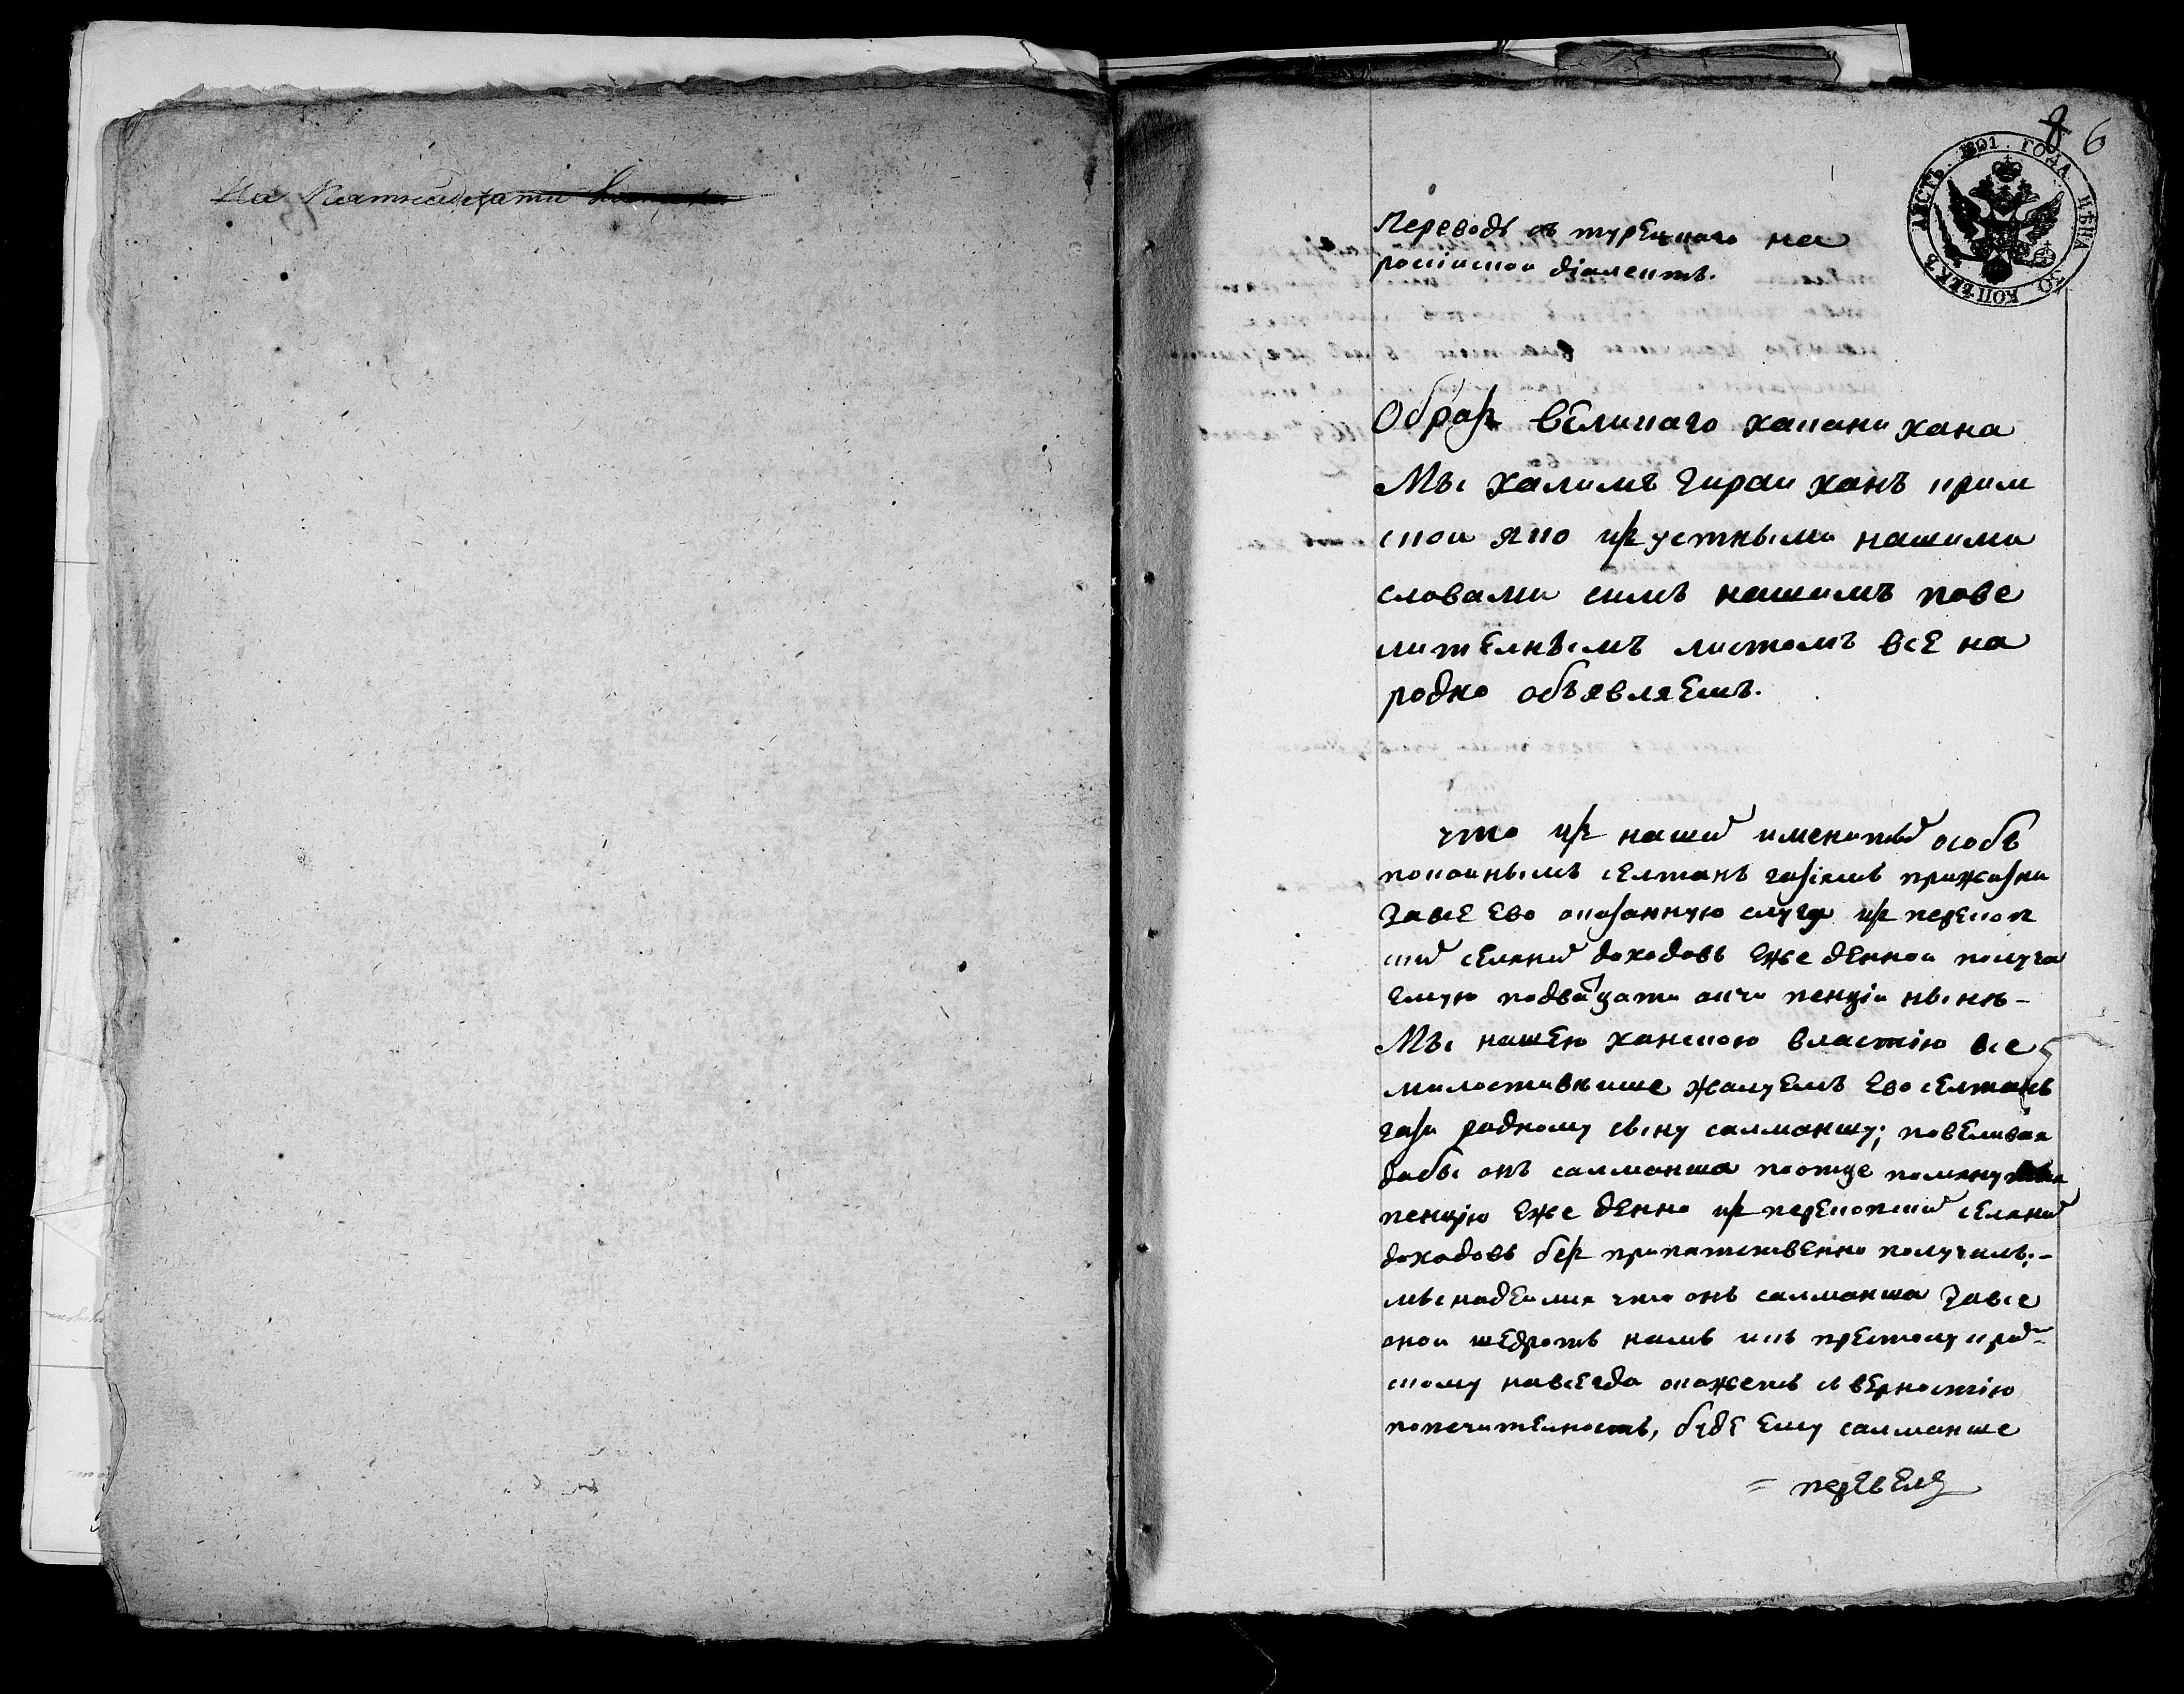 На Пятнадцати
8 6
ЛИСТЪ. 1801. ГОДА. ЦѢНА 30 КОПѢЕКЪ
Переводъ съ турецкаго на
россійской діалектъ.
Образъ великаго хакани хана
Мы халимъ гираи ханъ крим
скои яко изустными нашими
словами симъ нашимъ пове
лителнымъ листомъ все на
родно объявляемъ.
что из нашей именитой особѣ
покоинымъ селтанъ газіемъ
за все ево оказанную слугу из перекоп
ский селений доходовъ еже денной получа
емую по двадцати акчи пенціи нынѣ -
Мы нашею ханскою властію все
милостивѣише жалуемъ ево селтанъ
гази родному сыну салманшу; повеливая
дабы онъ салманша по отце помянутою
пенцію еже денно из перекопский селений
доходовъ без препятсвенно получалъ. -
мы надеимся что онъ салманша за все
онои щедротъ намъ и къ престолу крым
скому навсегда окажетъ съ верностію
попечителность, буде ему салманше
= перевелъ